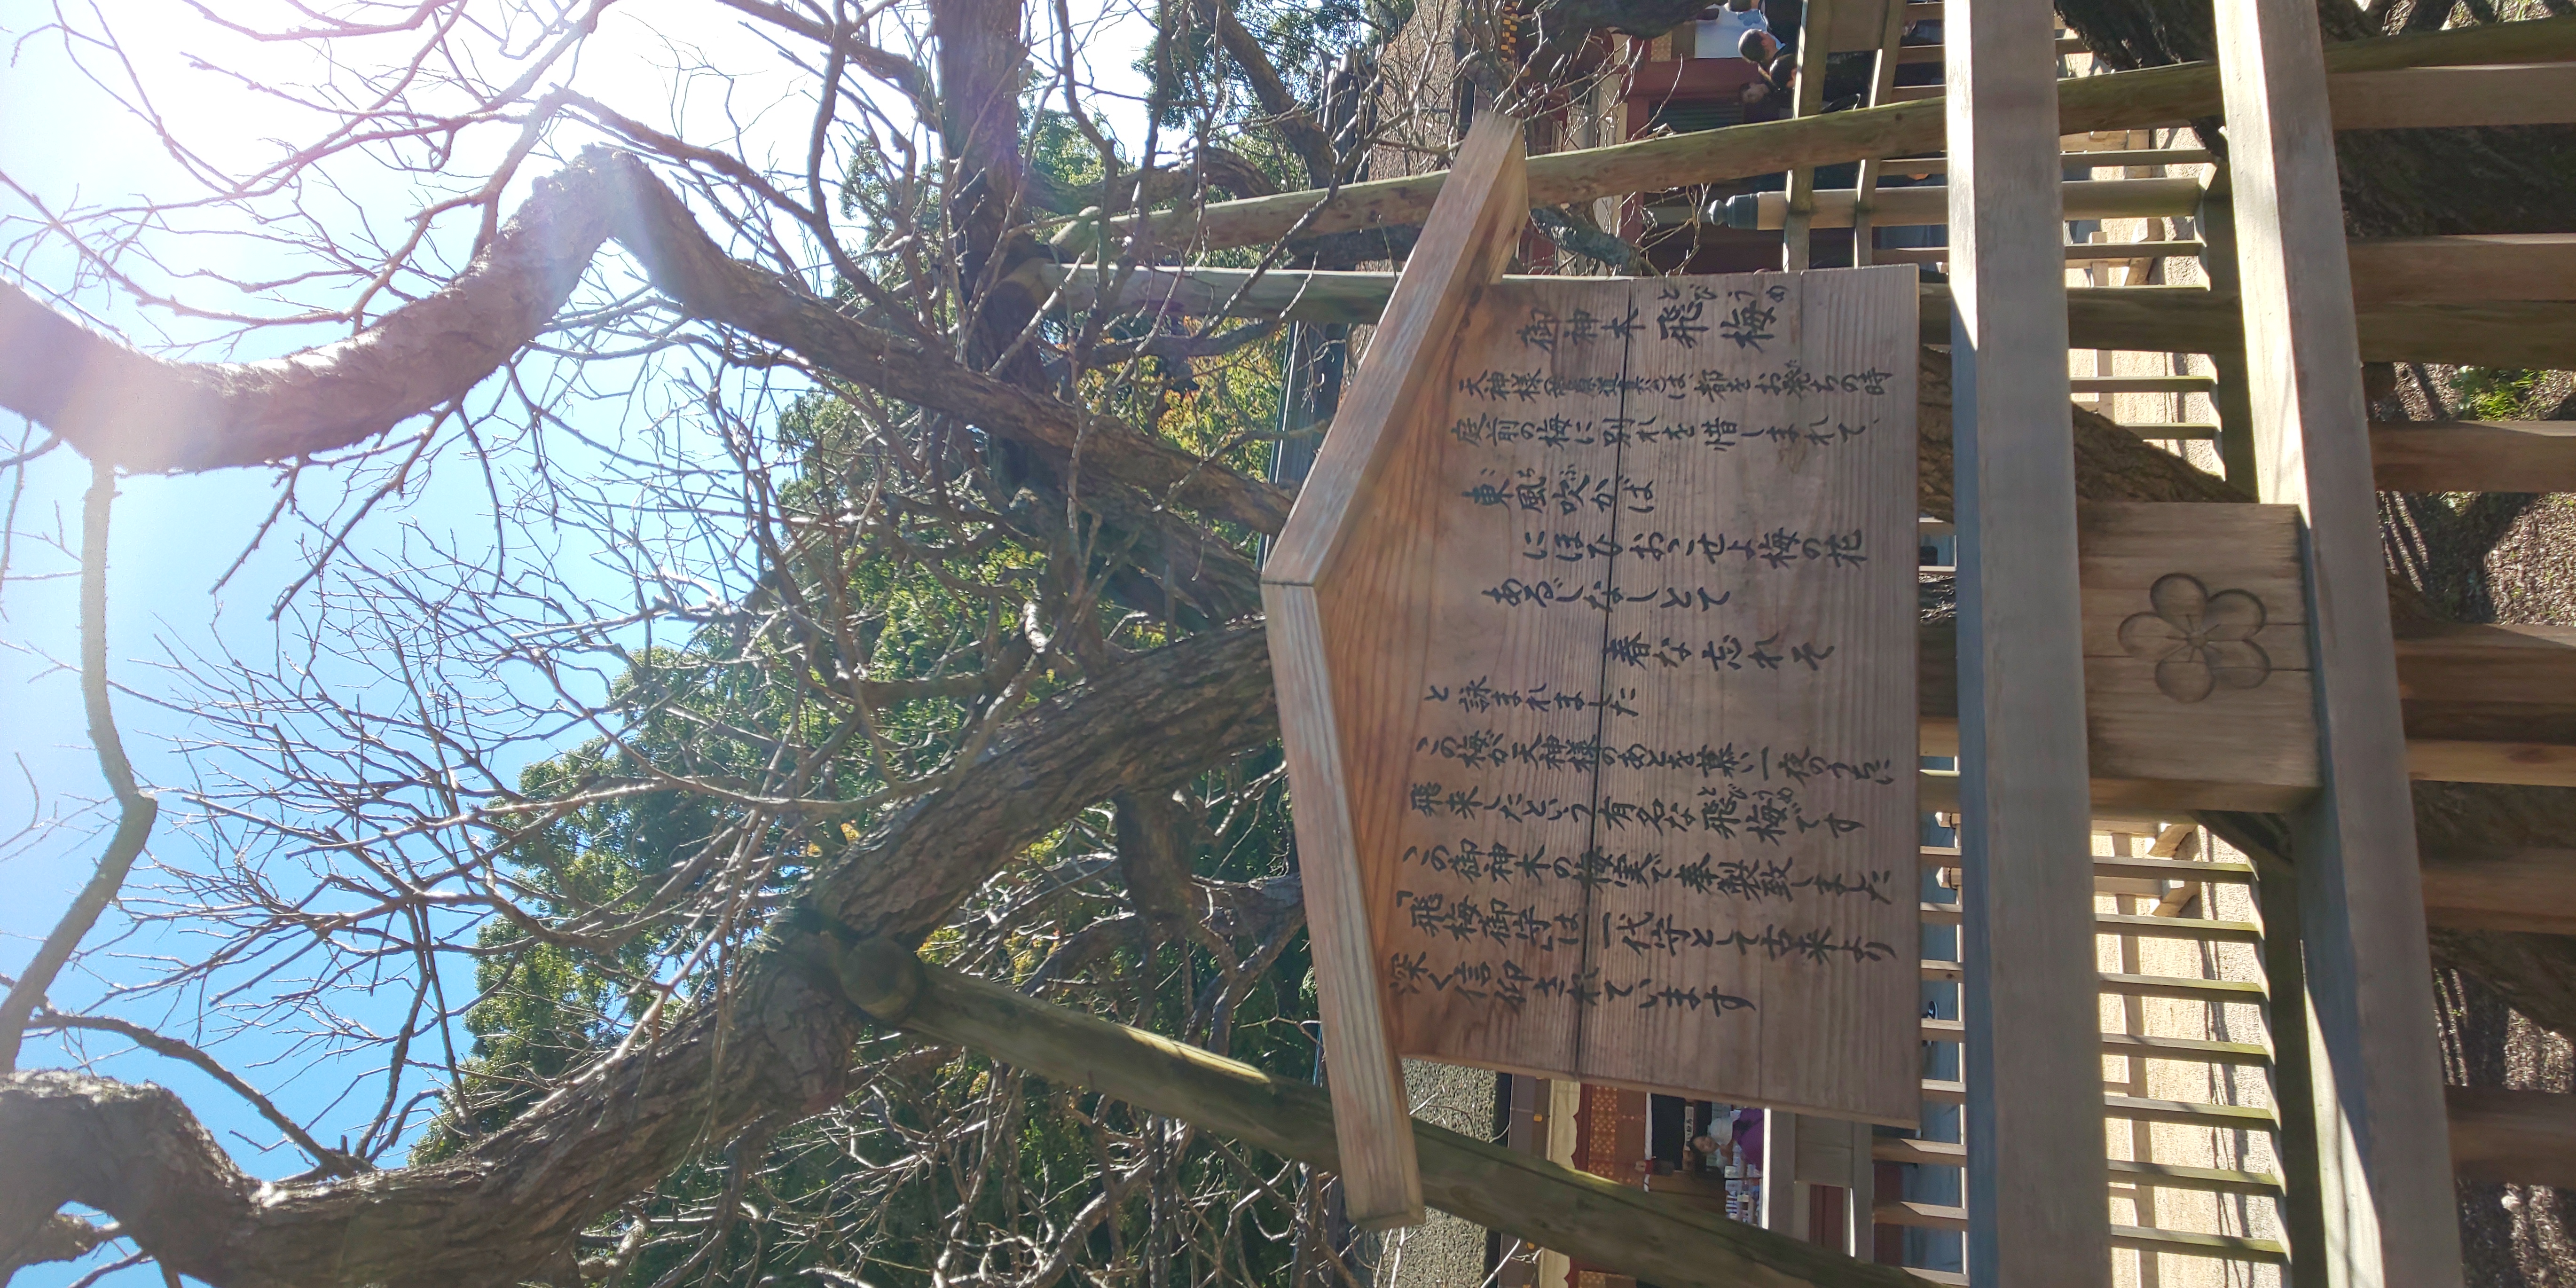 御神木 飛梅
とびうめ
天神様(菅原道真公)は、都をお発ちの時
庭前の梅に別れを惜しまれて、
東風吹かば
にほひおこせよ梅の花
あるじなしとて
春な忘れそ
と詠まれました
この梅が天神様のあとを慕い一夜のうちに
飛来したという有名な飛梅です
とびうめ
この御神木の梅実で奉製致しました
「飛梅御守」は一代守として古来より
深く信仰されています